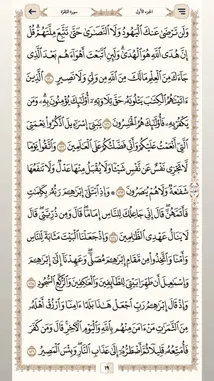 الجزء الأول سورة البقرة
وَلَن تَرْضَىٰ عَنكَ ٱلْيَهُودُ وَلَا ٱلنَّصَـٰرَىٰ حَتَّىٰ تَتَّبِعَ مِلَّتَهُمْ ۗ قُلْ
إِنَّ هُدَى ٱللَّهِ هُوَ ٱلْهُدَىٰ ۗ وَلَئِنِ ٱتَّبَعْتَ أَهْوَآءَهُم بَعْدَ ٱلَّذِى
جَآءَكَ مِنَ ٱلْعِلْمِ ۙ مَا لَكَ مِنَ ٱللَّهِ مِن وَلِىٍّ وَلَا نَصِيرٍ ١٢٠ ٱلَّذِينَ
ءَاتَيْنَـٰهُمُ ٱلْكِتَـٰبَ يَتْلُونَهُۥ حَقَّ تِلَاوَتِهِۦٓ أُو۟لَـٰٓئِكَ يُؤْمِنُونَ بِهِۦ ۗ وَمَن
يَكْفُرْ بِهِۦ فَأُو۟لَـٰٓئِكَ هُمُ ٱلْخَـٰسِرُونَ ١٢١ يَـٰبَنِىٓ إِسْرَٰٓءِيلَ ٱذْكُرُوا۟ نِعْمَتِىَ
ٱلَّتِىٓ أَنْعَمْتُ عَلَيْكُمْ وَأَنِّى فَضَّلْتُكُمْ عَلَى ٱلْعَـٰلَمِينَ ١٢٢ وَٱتَّقُوا۟ يَوْمًا
لَّا تَجْزِى نَفْسٌ عَن نَّفْسٍ شَيْـًٔا وَلَا يُقْبَلُ مِنْهَا عَدْلٌ وَلَا تَنفَعُهَا
شَفَـٰعَةٌ وَلَا هُمْ يُنصَرُونَ ١٢٣ ۞ وَإِذِ ٱبْتَلَىٰٓ إِبْرَٰهِـۧمَ رَبُّهُۥ بِكَلِمَـٰتٍ
فَأَتَمَّهُنَّ ۖ قَالَ إِنِّى جَاعِلُكَ لِلنَّاسِ إِمَامًا ۖ قَالَ وَمِن ذُرِّيَّتِى ۖ قَالَ
لَا يَنَالُ عَهْدِى ٱلظَّـٰلِمِينَ ١٢٤ وَإِذْ جَعَلْنَا ٱلْبَيْتَ مَثَابَةً لِّلنَّاسِ
وَأَمْنًا وَٱتَّخِذُوا۟ مِن مَّقَامِ إِبْرَٰهِـۧمَ مُصَلًّى ۖ وَعَهِدْنَآ إِلَىٰٓ إِبْرَٰهِـۧمَ
وَإِسْمَـٰعِيلَ أَن طَهِّرَا بَيْتِىَ لِلطَّآئِفِينَ وَٱلْعَـٰكِفِينَ وَٱلرُّكَّعِ ٱلسُّجُودِ ١٢٥
وَإِذْ قَالَ إِبْرَٰهِـۧمُ رَبِّ ٱجْعَلْ هَـٰذَا بَلَدًا ءَامِنًا وَٱرْزُقْ أَهْلَهُۥ
مِنَ ٱلثَّمَرَٰتِ مَنْ ءَامَنَ مِنْهُم بِٱللَّهِ وَٱلْيَوْمِ ٱلْـَٔاخِرِ ۖ قَالَ وَمَن كَفَرَ
فَأُمَتِّعُهُۥ قَلِيلًا ثُمَّ أَضْطَرُّهُۥٓ إِلَىٰ عَذَابِ ٱلنَّارِ ۖ وَبِئْسَ ٱلْمَصِيرُ ١٢٦
١٩